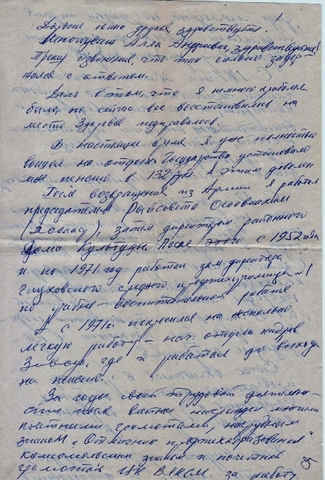 здравствуйте!
Многоуважаемая Алла Андреевна, здравствуйте!
Прошу извинения, что так сильно задер
жался с ответом.
Дело в том, что я немного
был, но сейчас все восстановилось на
место здоровье поправилось.
В настоящее время я уже полностью
вышел на отдых. Государство установило
мне пенсию в 132 руб. и этим доволен
После возвращения из Армии я работал
председателем Райсовета Осоавиахим
затем директором районного
Дома культуры. После этого с 1952 года
и по 1971 год работал зам. директора
Глуховского среднего
по учебно-воспитательной работе
С 1971г. перешел на несколько
легкую работу - нач. отдела кадров
Завода, где и работал до выхода
на пенсию.
За годы своей трудовой
после войны награжден многими
почетными грамотами, нагрудным
знаком "Отличник профтехобразования"
комсомольским знаком и почетной
грамотой ЦК ВЛКСМ за работу